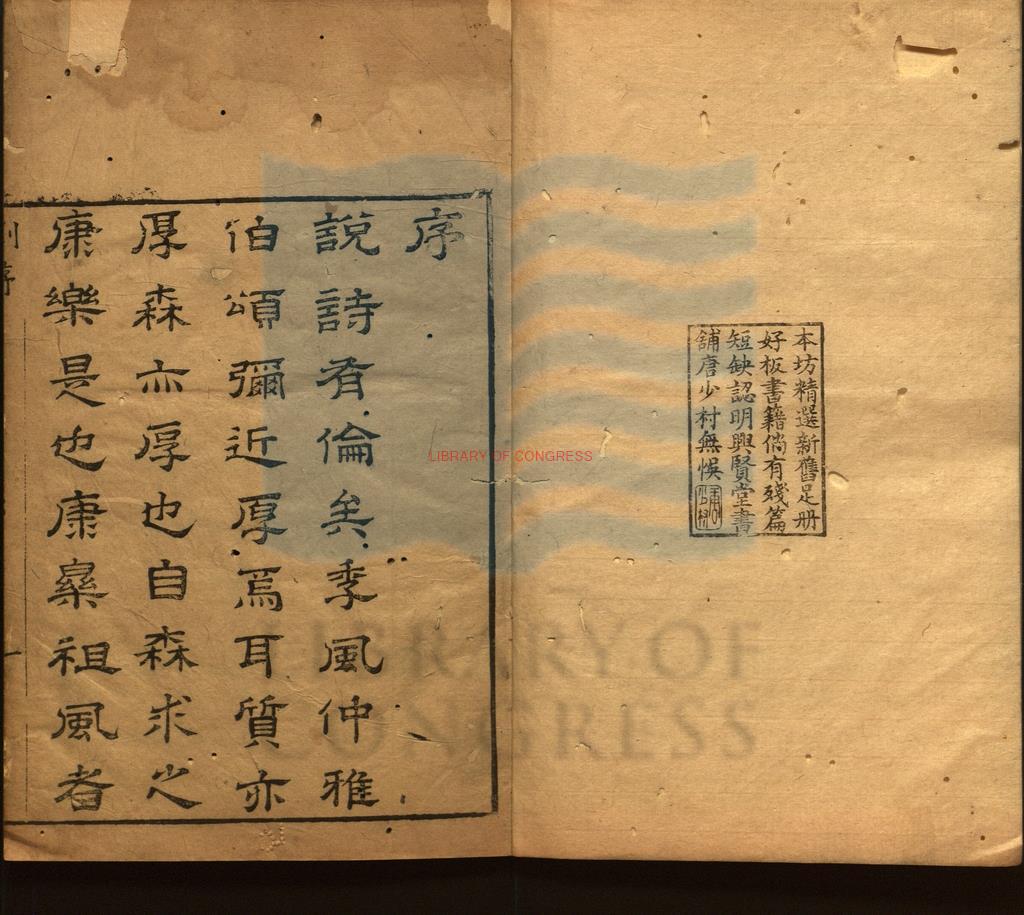 本坊精選新舊足册
好板書籍倘有殘篇
短缺認明興賢堂書
舖唐少村無悞
序
說詩有倫矣季風仲雅
伯頌彌近厚焉耳質亦
厚森亦厚也自森求之
康樂是也康樂祖風者
序
一
LIBRARY OF CONGRESS
LIBRARY OF
CONGRESS